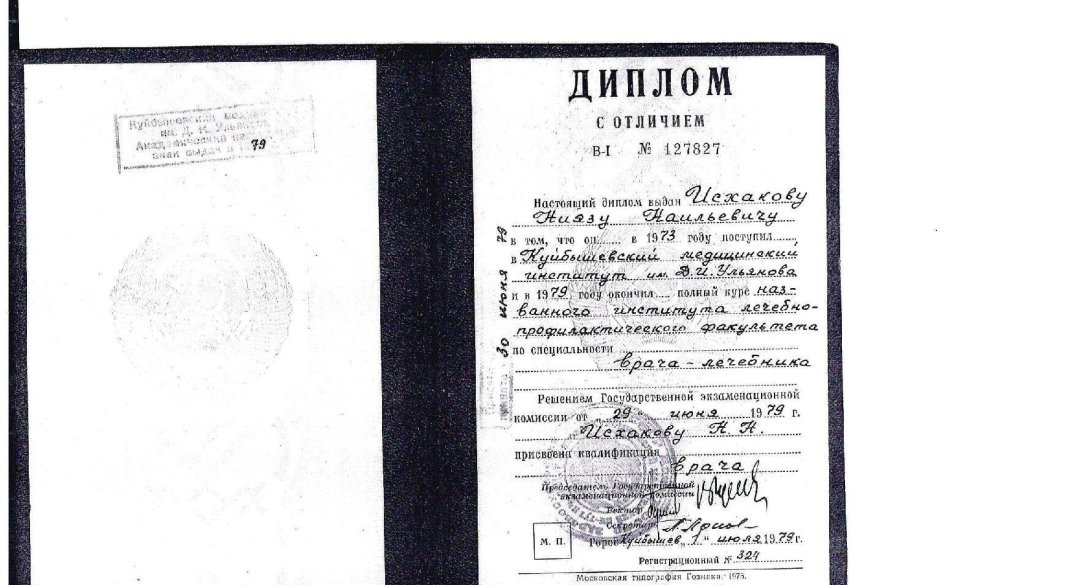 Куйбышевский медиц
им. Д. И. Ульянова
Академический
знак выдан в 79
ДИПЛОМ
С ОТЛИЧИЕМ
В-I № 127827
Настоящий диплом выдан Исхакову
Ниязу Наильевичу
в том, что он...... в 1973 году поступил......
в Куйбышевский медицинский
институт им. Д.И. Ульянова
и в 1979 году окончил.... полный курс наз-
ванного института лечебно-
профилактического факультета
по специальности
врача-лечебника
Решением Государственной экзаменационной
комиссии от „29“ июня 1979 г.
Исхакову Н. Н.
присвоена квалификация
врача
Председатель Государственной
экзаменационной комиссии
Ректор
Секретарь
М. П.
Город Куйбышев „1“ июля 1979 г.
Регистрационный № 324
Московская типография Гознака. 1975.
30 июня 79